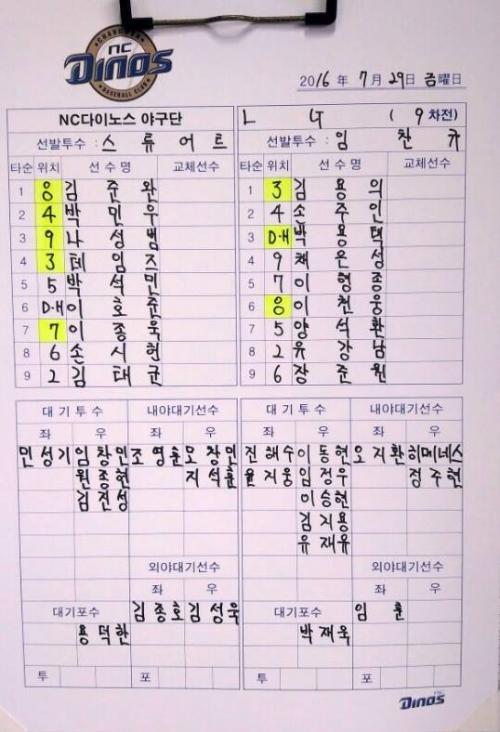 CHANGWON
NC
DINOS
BASEBALL CLUB
2016 年 7 月 29 日 금曜日
NC다이노스 야구단
선발투수 : 스 류 어 트
타순 위치 선 수 명 교체선수
1 8 김 준 완
2 4 박 민 우
3 9 나 성 범
4 3 테 임 즈
5 5 박 석 민
6 D·H 이 호 준
7 7 이 종 욱
8 6 손 시 헌
9 2 김 태 균
L G ( 9 차전)
선발투수 : 임 찬 규
타순 위치 선 수 명 교체선수
1 3 김 용 의
2 4 손 주 인
3 D·H 박 용 택
4 9 채 은 성
5 7 이 형 종
6 8 이 천 웅
7 5 양 석 환
8 2 유 강 남
9 6 장 준 원
대 기 투 수 내야대기선수
좌 우 좌 우
민 성 기 임 창 민 조 영 훈 모 창 민
원 종 현 지 석 훈
김 진 성
외야대기선수
좌 우
대기포수 김 종 호 김 성 욱
용 덕 한
투 포
대 기 투 수 내야대기선수
좌 우 좌 우
진 해 수 이 동 현 오 지 환 히 메 네 스
윤 지 웅 임 정 우 정 주 현
이 승 현
김 지 용
유 재 유
외야대기선수
좌 우
대기포수 임 훈
박 재 욱
투 포
NC
DINOS